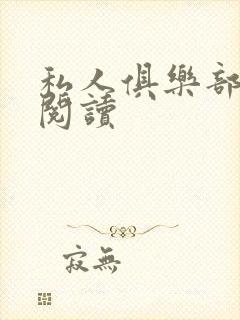 私人俱樂部
閱讀
寂無